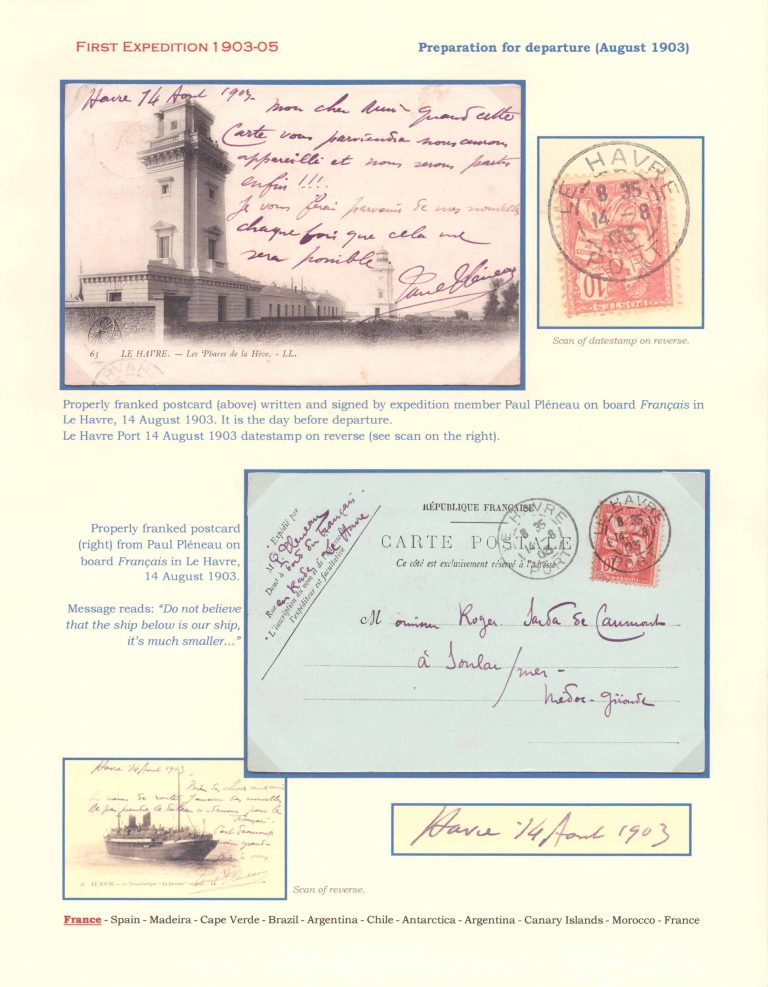 FIRST EXPEDITION 1903-05
Preparation for departure (August 1903)
Havre 14 Aout 1903-
mon cher ami- Quand cette
Carte vous parviendra nous aurons
appareillé et nous serons partis
enfin !!!.
Je vous ferai parvenir de nos nouvelles
chaque fois que cela me
sera possible
Paul Pléneau
63 LE HAVRE. — Les Phares de la Hève. - LL.
LE HAVRE
8 35
14 -8
03
PORT
10
POSTES
Scan of datestamp on reverse.
Properly franked postcard (above) written and signed by expedition member Paul Pléneau on board Français in
Le Havre, 14 August 1903. It is the day before departure.
Le Havre Port 14 August 1903 datestamp on reverse (see scan on the right).
Properly franked postcard
(right) from Paul Pléneau on
board Français in Le Havre,
14 August 1903.
Message reads: “Do not believe
that the ship below is our ship,
it's much smaller…”
* Expédié par
M P. Pléneau
Demt à bord du Français
Rue en Rade Le Havre
* L'inscription du nom et de
l'expéditeur est facultative
RÉPUBLIQUE FRANÇAISE
CARTE POSTALE
Ce côté est exclusivement réservé à l'adresse.
LE HAVRE
8 35
14 -8
03
PORT
LE HAVRE
8 35
14 -8
03
10
Monsieur Roger Sarda de Caumont
à Soulac/mer-
Médoc-Gironde
Havre 14 Aout 1903
LE HAVRE. — Le Transatlantique
LL
Havre 14 Aout 1903
Scan of reverse.
France - Spain - Madeira - Cape Verde - Brazil - Argentina - Chile - Antarctica - Argentina - Canary Islands - Morocco - France